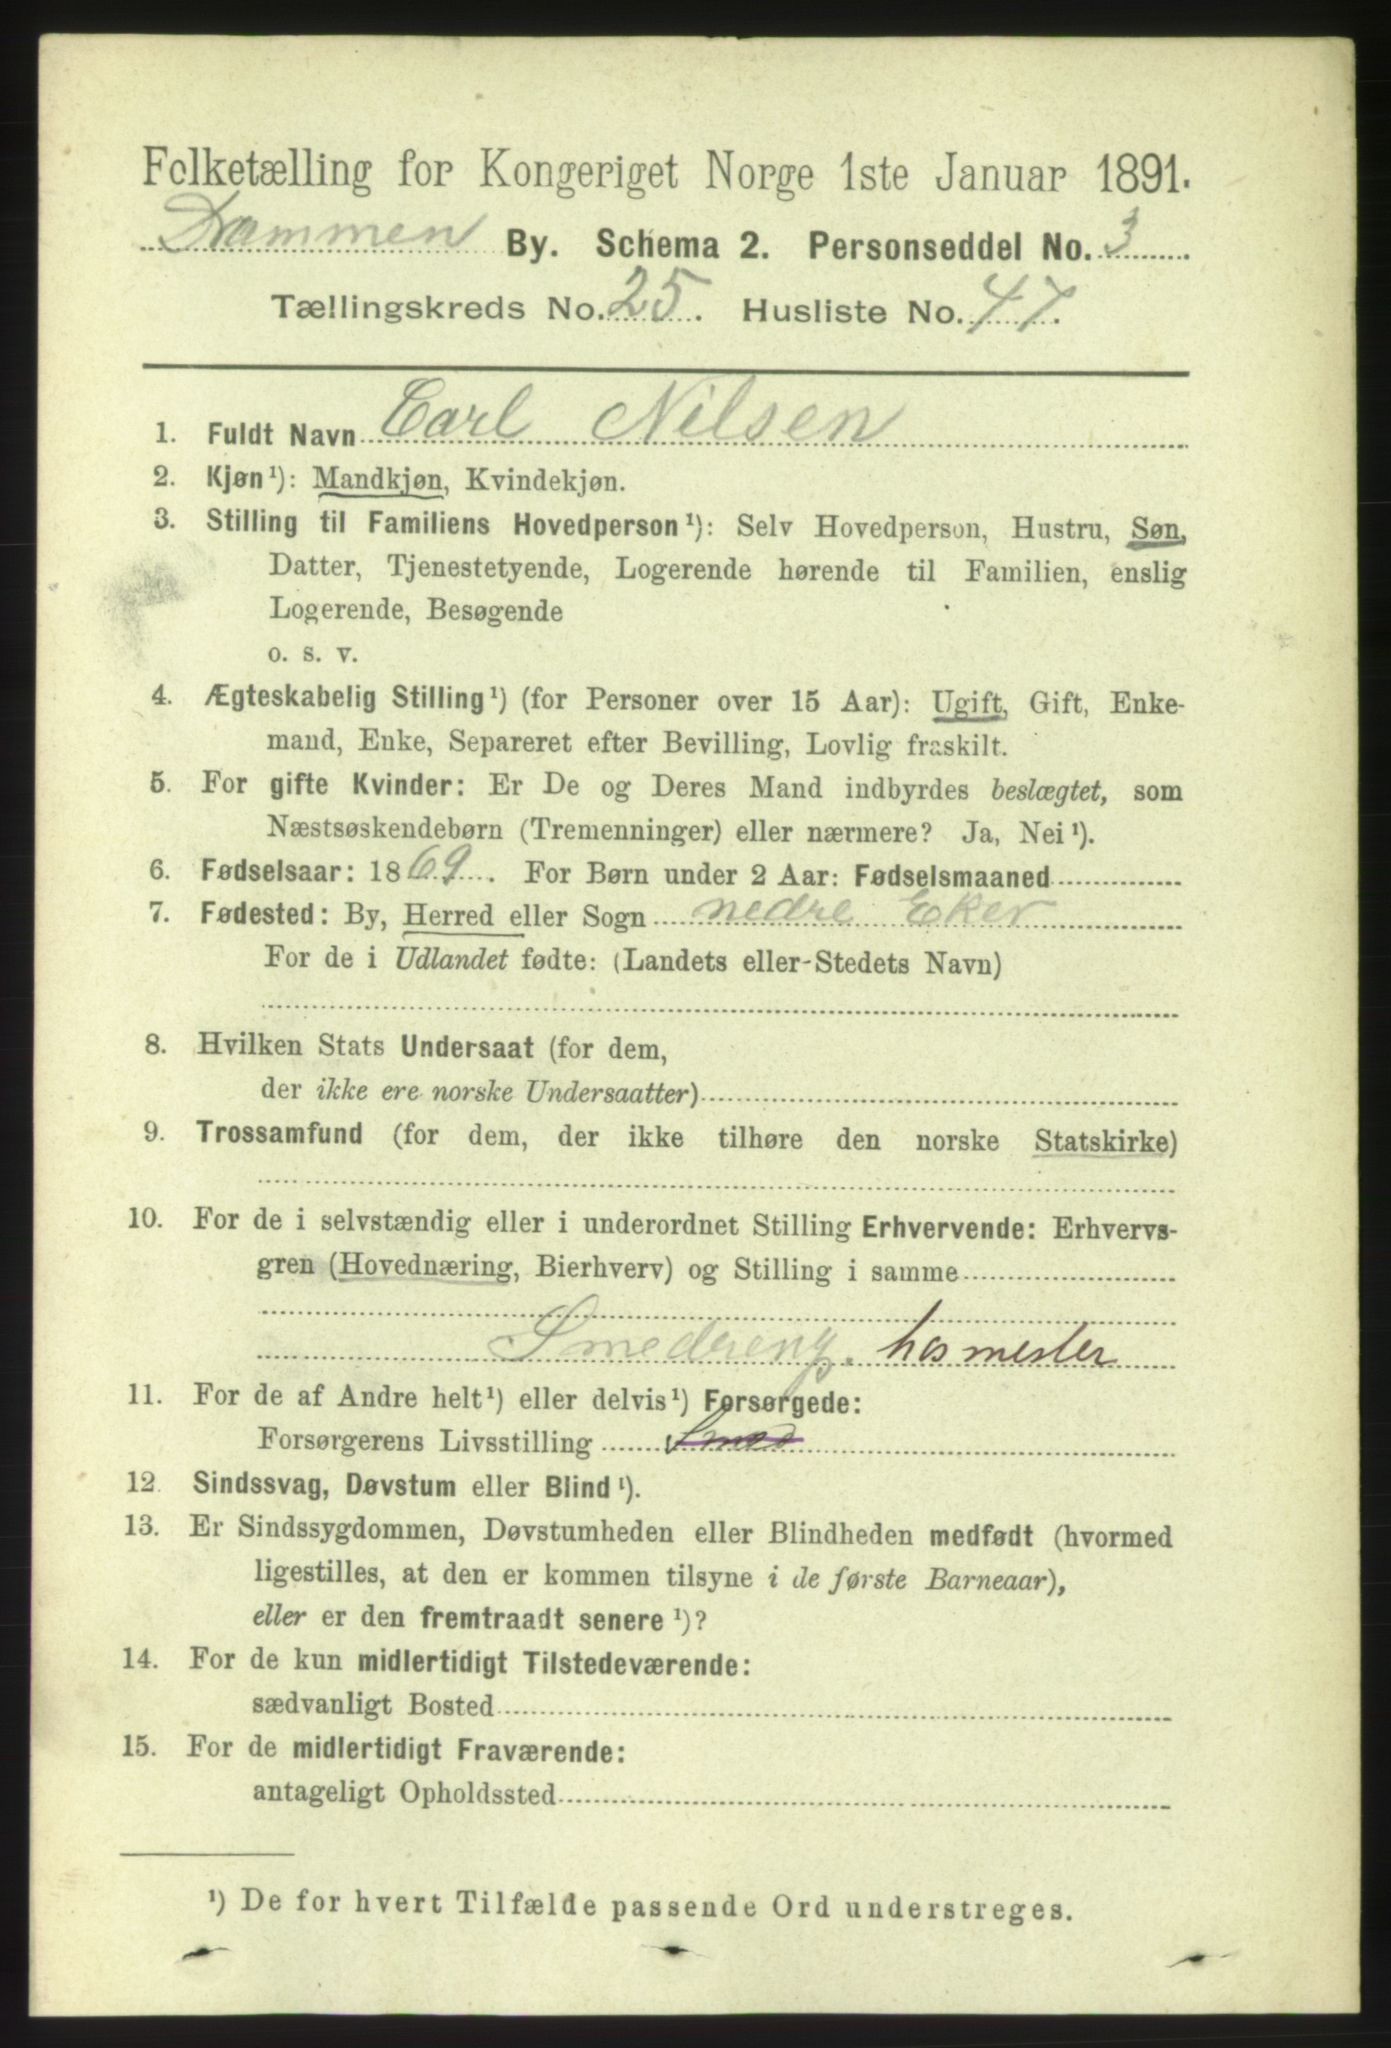 Folketælling for Kongeriget Norge 1ste Januar 1891.
Drammen By. Schema 2. Personseddel No. 3
Tællingskreds No. 25. Husliste No. 47.
1. Fuldt Navn Carl Nilsen
2. Kjøn¹): Mandkjøn, Kvindekjøn.
3. Stilling til Familiens Hovedperson¹): Selv Hovedperson, Hustru, Søn,
Datter, Tjenestetyende, Logerende hørende til Familien, enslig
Logerende, Besøgende
o. s. v.
4. Ægteskabelig Stilling¹) (for Personer over 15 Aar): Ugift, Gift, Enke-
mand, Enke, Separeret efter Bevilling, Lovlig fraskilt.
5. For gifte Kvinder: Er De og Deres Mand indbyrdes beslægtet, som
Næstsøskendebørn (Tremenninger) eller nærmere? Ja, Nei¹).
6. Fødselsaar: 1869. For Børn under 2 Aar: Fødselsmaaned
7. Fødested: By, Herred eller Sogn nedre Eker
For de i Udlandet fødte: (Landets eller Stedets Navn)
8. Hvilken Stats Undersaat (for dem,
der ikke ere norske Undersaatter)
9. Trossamfund (for dem, der ikke tilhøre den norske Statskirke)
10. For de i selvstændig eller i underordnet Stilling Erhvervende: Erhvervs-
gren (Hovednæring, Bierhverv) og Stilling i samme
Smedreng. hos mester
11. For de af Andre helt¹) eller delvis¹) Forsørgede:
Forsørgerens Livsstilling Smed
12. Sindssvag, Døvstum eller Blind¹).
13. Er Sindssygdommen, Døvstumheden eller Blindheden medfødt (hvormed
ligestilles, at den er kommen tilsyne i de første Barneaar),
eller er den fremtraadt senere¹)?
14. For de kun midlertidigt Tilstedeværende:
sædvanligt Bosted
15. For de midlertidigt Fraværende:
antageligt Opholdssted
¹) De for hvert Tilfælde passende Ord understreges.